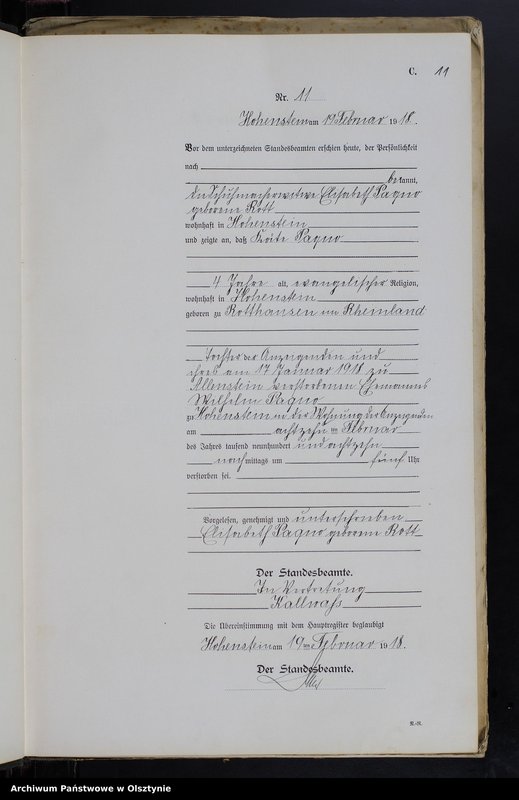 C. 11
Nr. 11
Hohenstein am 19 Februar 1918.
Vor dem unterzeichneten Standesbeamten erschien heute, der Persönlichkeit
nach
bekannt,
die Schuhmacherwitwe Elisabeth Pagno
geborene Rott
wohnhaft in Hohenstein
und zeigte an, daß Käte Pagno
4 Jahre alt, evangelischer Religion,
wohnhaft in Hohenstein
geboren zu Rotthausen im Rheinland
Tochter der Anzeigenden und
ihres am 17 Januar 1918 zu
Allenstein verstorbenen Ehemannes
Wilhelm Pagno
zu Hohenstein in der Wohnung der Anzeigenden
am achtzehn ten Februar
des Jahres tausend neunhundert und achtzehn
nach mittags um fünf Uhr
verstorben sei.
Vorgelesen, genehmigt und unterschrieben
Elisabeth Pagno geborene Rott
Der Standesbeamte.
In Vertretung
Kallwaß
Die Übereinstimmung mit dem Hauptregister beglaubigt
Hohenstein am 19 ten Februar 1918.
Der Standesbeamte.
Archiwum Państwowe w Olsztynie